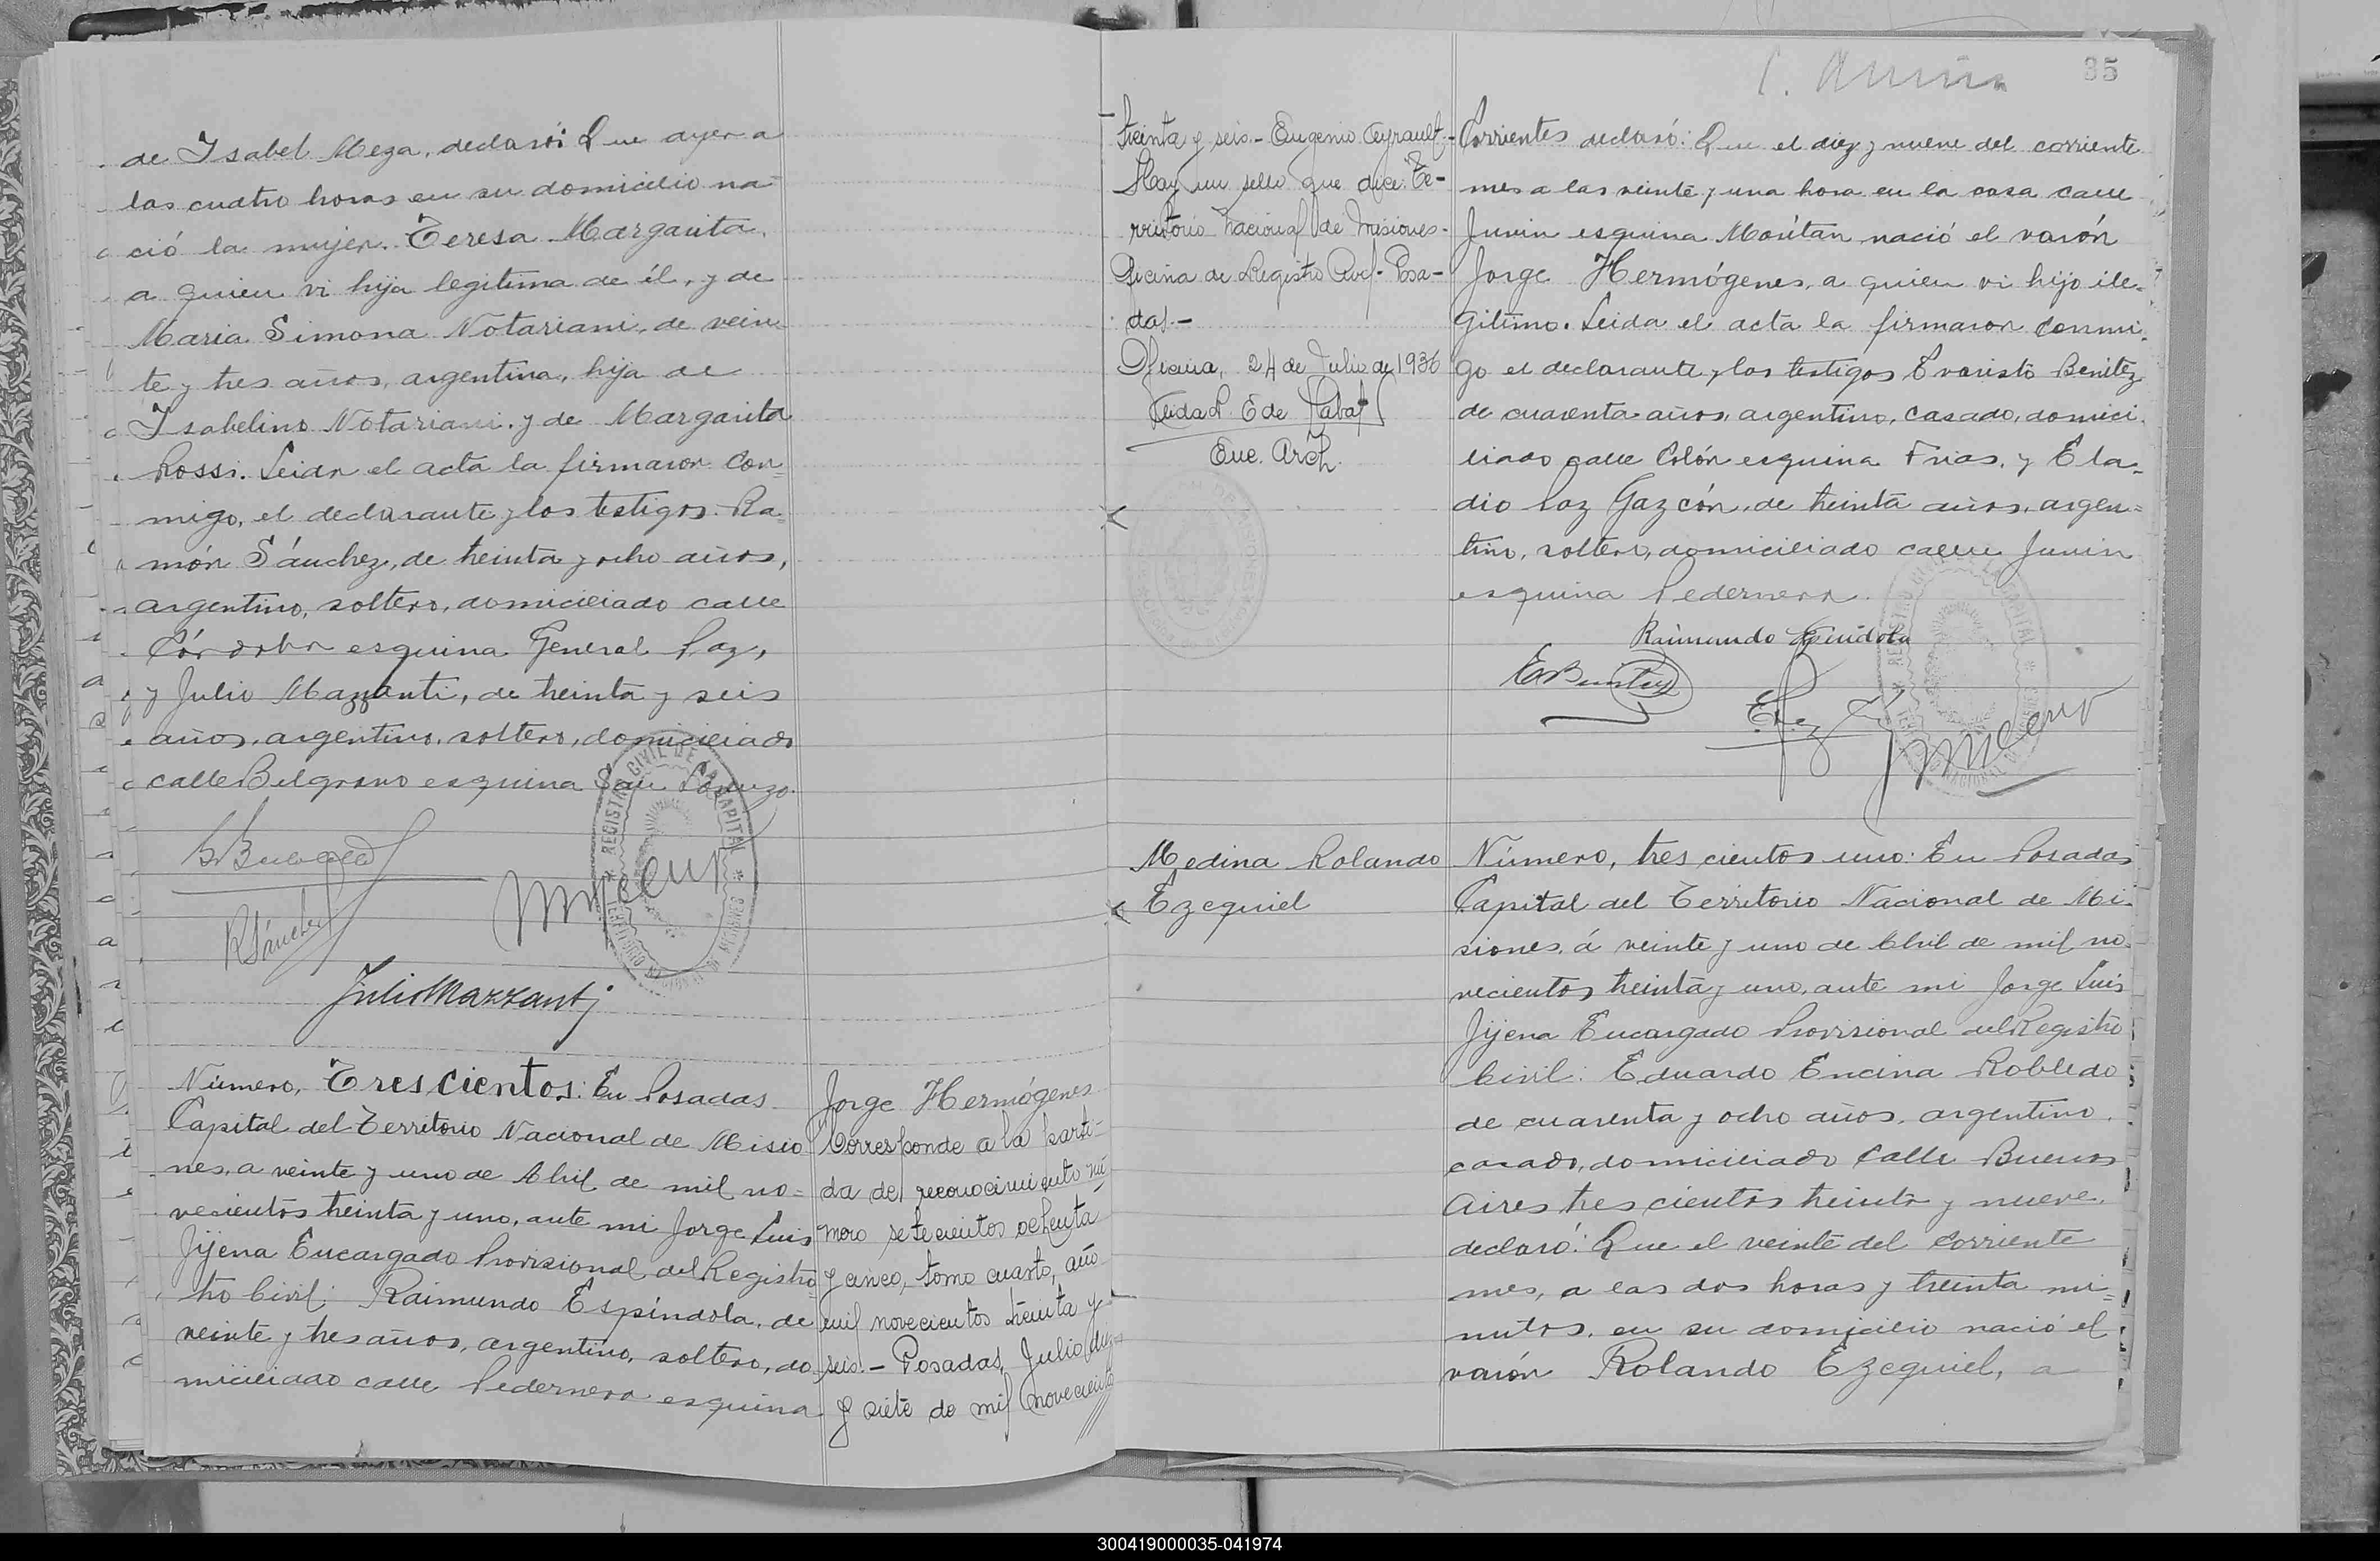 de Isabel Meza, declaró: Que ayer a
las cuatro horas en su domicilio na-
ció la mujer Teresa Margarita,
a quien vi hija legitima de él, y de
Maria Simona Notariani, de vein-
te y tres años, argentina, hija de
Isabelino Notariani y de Margarita
Rossi. Leida el acta la firmaron con-
migo, el declarante y los testigos Ra-
món Sánchez, de treinta y ocho años,
argentino, soltero, domiciliado calle
Córdoba esquina General Paz,
y Julio Mazzanti, de treinta y seis
años, argentino, soltero, domiciliado
calle Belgrano esquina San Lorenzo.
REGISTRO CIVIL DE LA CAPITAL
RSánchez
JulioMazzanti
Número, Trescientos: En Posadas
Capital del Territorio Nacional de Misio
nes, a veinte y uno de Abril de mil no=
vecientos treinta y uno, ante mi Jorge Luis
Jijena Encargado Provisional del Regis
tro Civil: Raimundo Espíndola, de
veinte y tres años, argentino, soltero, do
miciliado calle Pedernera esquina
Jorge Hermógenes
Corresponde a la parti-
da de reconocimiento nú
mero setecientos ochenta
y cinco, tomo cuarto, año
mil novecientos treinta y
seis.- Posadas, Julio diez
y siete de mil novecientos
treinta y seis.- Eugenio
Hay un sello que dice: Te-
rritorio Nacional de Misiones-
Oficina de Registro Civil- Posa-
das.-
Oficina, 24 de Julio de 1936
Enc. Arch.
35
Corrientes declaró: Que el diez y nueve del corriente
mes a las veinte y una hora en la casa calle
Junin esquina Moritán nació el varón
Jorge Hermógenes, a quien vi hijo ile-
gitimo. Leida el acta la firmaron conmi-
go el declarante y los testigos Evaristo Benitez
de cuarenta años, argentino, casado, domici-
liado calle Colón esquina Frias, y Ela-
dio Paz Gazcón, de treinta años, argen=
tino, soltero, domiciliado calle Junin
esquina Pedernera.
Raimundo Espindola
EBenitez
Medina Rolando
Ezequiel
Número, tres cientos uno: En Posadas
Capital del Territorio Nacional de Mi-
siones, á veinte y uno de Abril de mil no-
vecientos treinta y uno, ante mi Jorge Luis
Jijena Encargado Provisional del Registro
Civil: Eduardo Encina Robledo
de cuarenta y ocho años, argentino,
casado, domiciliado Calle Buenos
Aires tres cientos treinta y nueve,
declaró: Que el veinte del corriente
mes, a las dos horas y treinta mi=
nutos, en su domicilio nació el
varón Rolando Ezequiel, a
300419000035-041974